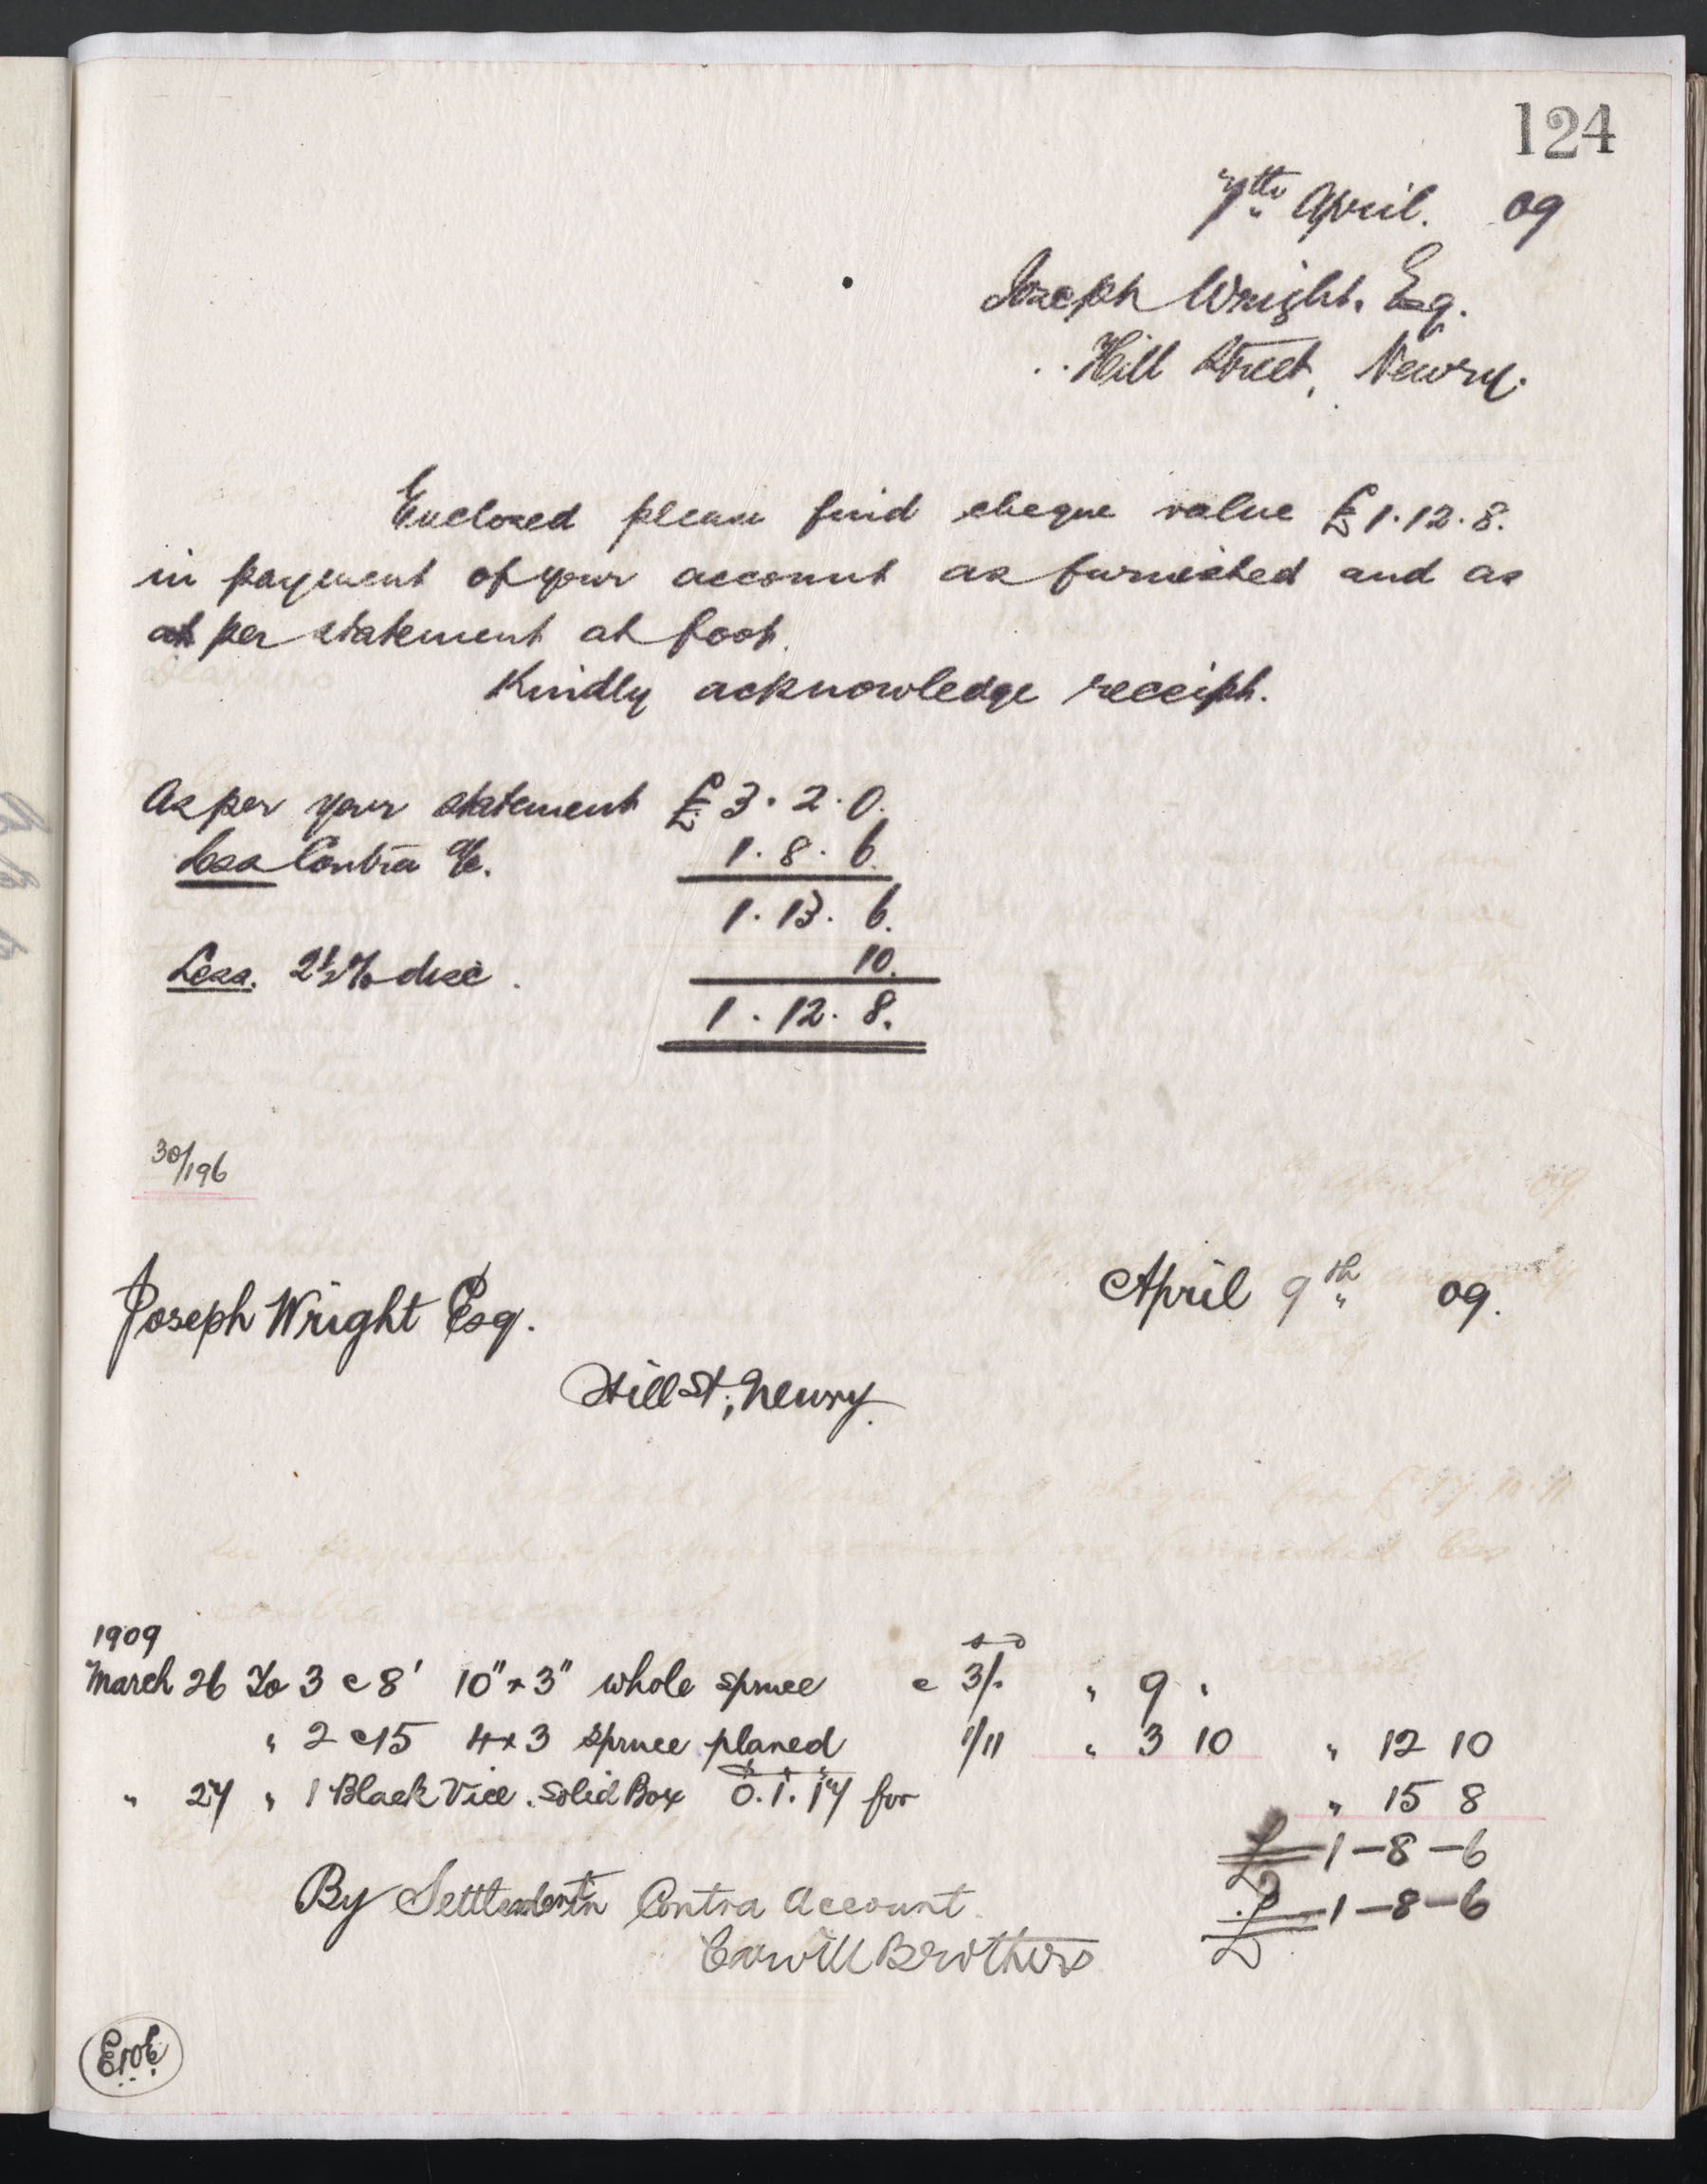 124
7th April. 09
Joseph Wright. Esq.
Hill Street, Newry.
Enclosed please find cheque value £1.12.8.
in payment of your account as furnished and as
per statement at foot.
Kindly acknowledge receipt.
As per your statement £3.2.0.
Less Contra a/c. 1.8.6.
1.13.6.
Less. 2½% disc. 10.
1.12.8.
30/196
April 9th 09.
Joseph Wright Esq.
Hill St, Newry.
1909
March 26 To 3 e 8' 10" x 3" whole spruce e 3/. " 9 "
" 2 e 15 4 x 3 spruce planed 1/11 " 3 10 " 12 10
" 27 " 1 Black Vice. Solid Box 0.1.17 for " 15 8
£ 1-8-6
By Settlement in Contra Account £ 1-8-6
Carvill Brothers